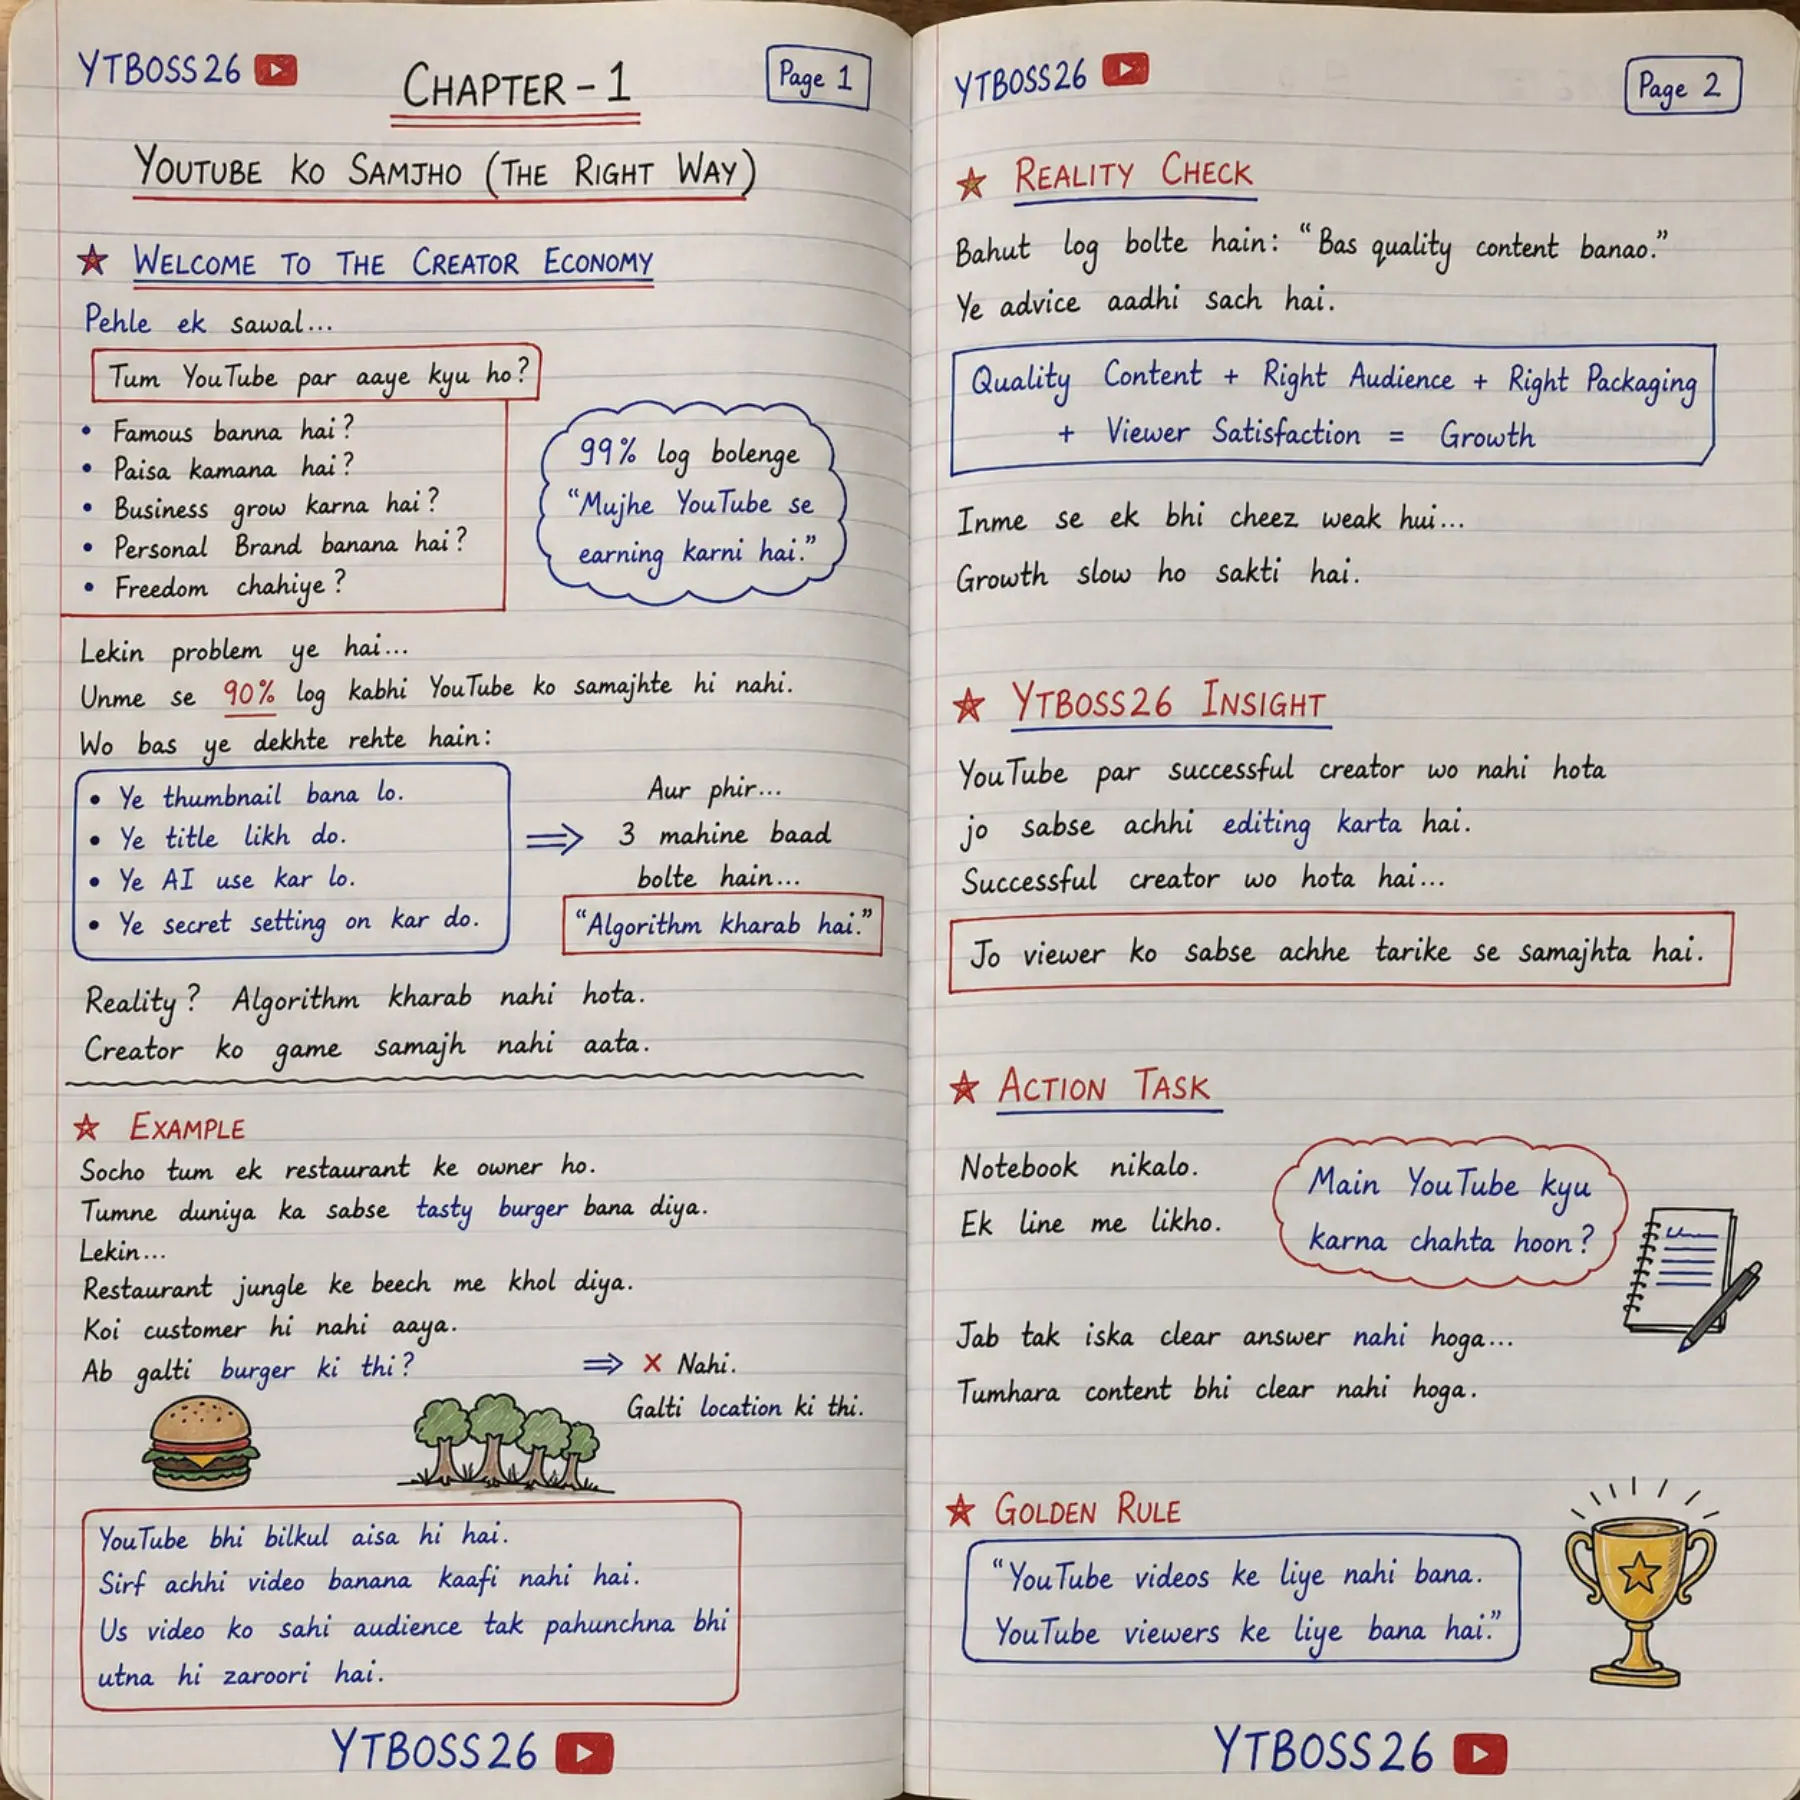 YTBOSS26
CHAPTER - 1
Page 1
YOUTUBE KO SAMJHO (THE RIGHT WAY)
WELCOME TO THE CREATOR ECONOMY
Pehle ek sawal...
Tum YouTube par aaye kyu ho?
• Famous banna hai?
• Paisa kamana hai?
• Business grow karna hai?
• Personal Brand banana hai?
• Freedom chahiye?
99% log bolenge
"Mujhe YouTube se
earning karni hai."
Lekin problem ye hai...
Unme se 90% log kabhi YouTube ko samajhte hi nahi.
Wo bas ye dekhte rehte hain:
• Ye thumbnail bana lo.
• Ye title likh do.
• Ye AI use kar lo.
• Ye secret setting on kar do.
Aur phir...
3 mahine baad
bolte hain...
"Algorithm kharab hai."
Reality? Algorithm kharab nahi hota.
Creator ko game samajh nahi aata.
EXAMPLE
Socho tum ek restaurant ke owner ho.
Tumne duniya ka sabse tasty burger bana diya.
Lekin...
Restaurant jungle ke beech me khol diya.
Koi customer hi nahi aaya.
Ab galti burger ki thi? ⇒ × Nahi.
Galti location ki thi.
YouTube bhi bilkul aisa hi hai.
Sirf achhi video banana kaafi nahi hai.
Us video ko sahi audience tak pahunchna bhi
utna hi zaroori hai.
YTBOSS26
YTBOSS26
Page 2
REALITY CHECK
Bahut log bolte hain: "Bas quality content banao."
Ye advice aadhi sach hai.
Quality Content + Right Audience + Right Packaging
+ Viewer Satisfaction = Growth
Inme se ek bhi cheez weak hui...
Growth slow ho sakti hai.
YTBOSS26 INSIGHT
YouTube par successful creator wo nahi hota
jo sabse achhi editing karta hai.
Successful creator wo hota hai...
Jo viewer ko sabse achhe tarike se samajhta hai.
ACTION TASK
Notebook nikalo.
Ek line me likho.
Main YouTube kyu
karna chahta hoon?
Jab tak iska clear answer nahi hoga...
Tumhara content bhi clear nahi hoga.
GOLDEN RULE
"YouTube videos ke liye nahi bana.
YouTube viewers ke liye bana hai."
YTBOSS26